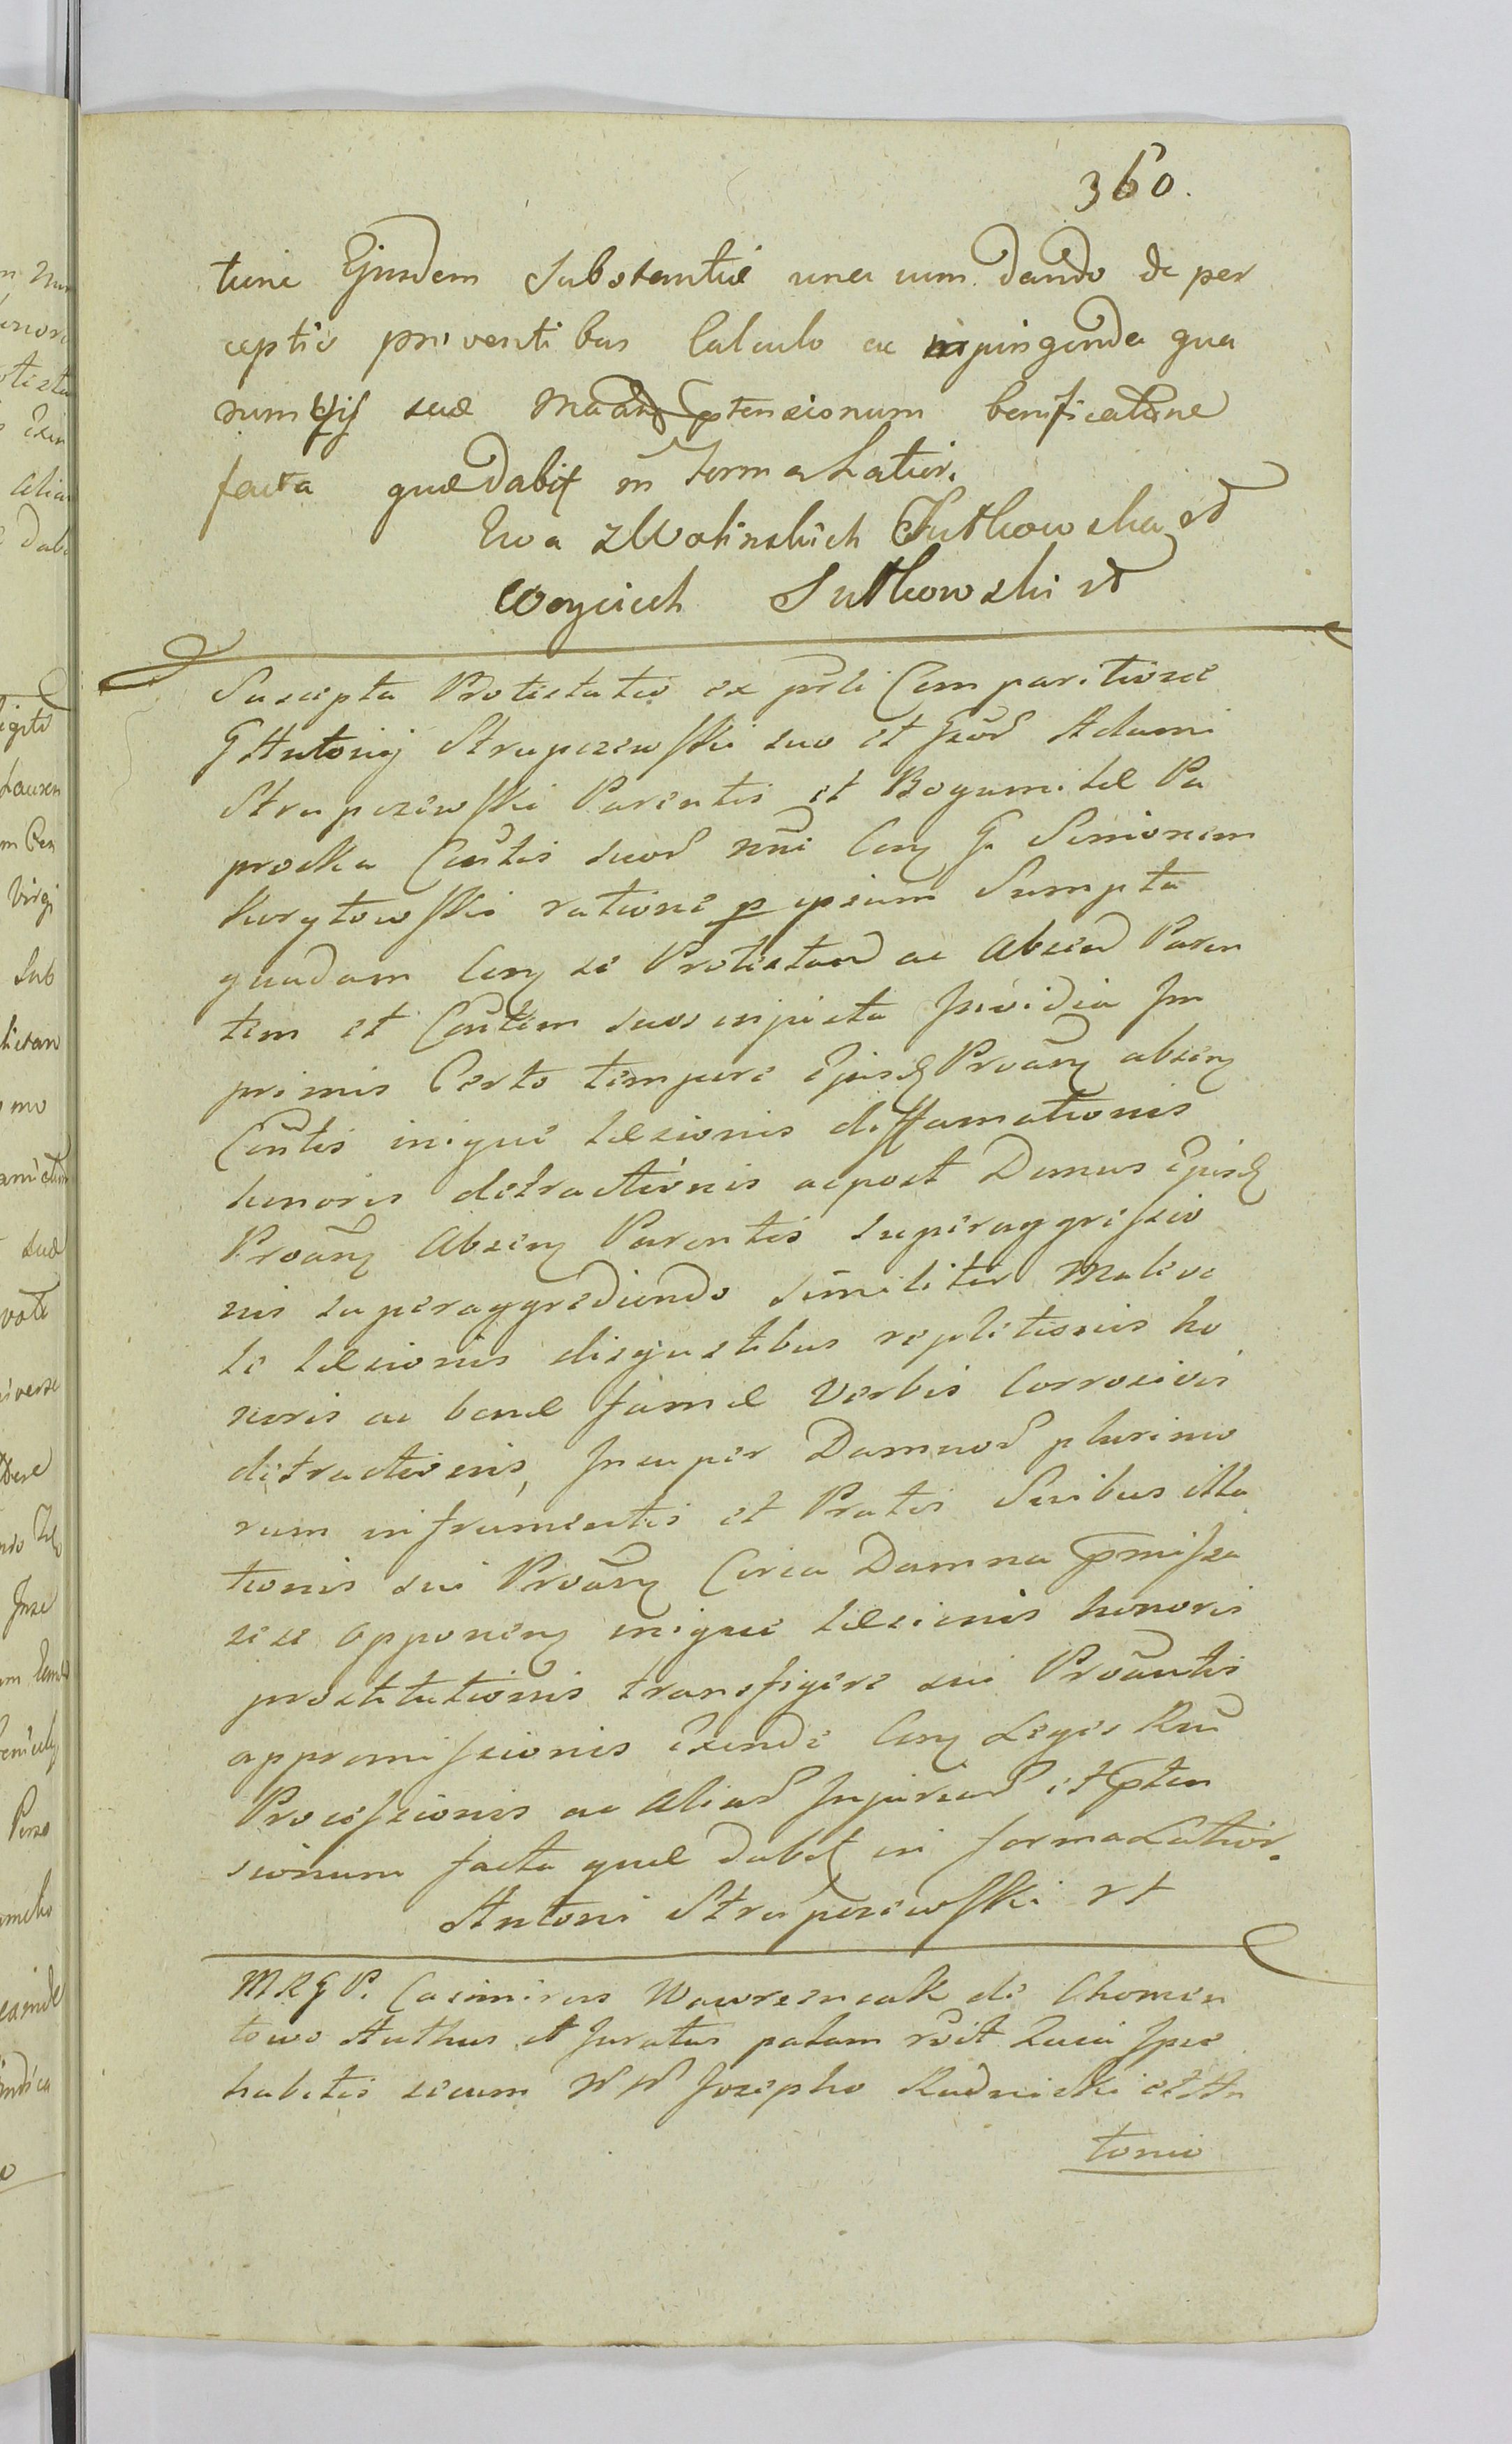 360.
tione Ejusdem Substantiæ una cum dando de per
ceptis proventibus Calculo ac inpingenda qua
rumvis suæ Ptensionum bonificatione
facta quæ dabit in forma Latiori.
Ewa z Wolinskich Sutkowska
Woyciech Sutkowski
Suscepta Protestatio ex psli Comparitione
G Antonij Strupczewsski suo et Adami
Strupczewsski Parentis et Bogumilæ Pa
procka Cōntis suor nni Con G. Simonem
Kurytowsski ratione p ipsum Sumpta
quadam Con se Protestan ac Absen Paren
tem et Cōntem suos injusta Invidia Im
primis Certo tempore Ejusd Proān absen
Cōntis inique læsionis diffamationis
honoris detractionis ac post Domus Ejusd
Proān Absen Parentis superaggressio
nis superaggrediendo similiter Malevo
le læsionis disgustibus repletionis ho
noris ac bonæ famæ Verbis Corrosivis
detractionis, Insuper Damnor plurimo
rum in frumentis et Pratis Suibus illa
tionis sui Proān Circa Damna Pmissa
sese opponen inique læsionis honoris
prostitutionis transfigere sui Proāntis
appromissionis Exinde Con Leges Rni
Processionis ac Aliar Injuriar et Pten
sionum facta quæ dabit in forma Latior.
Antoni Strupczewsski
M R G P. Casimirus Wawrzencak de Chomen
towo Authus et Juratus palam rōit Quia Ipse
habitis secum N N Josepho Rudnicki et An
tonio